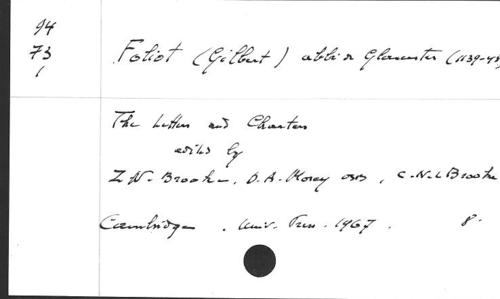 94
73
1
Foliot (Gilbert) abbé de Gloucester (1139-48)
The Letters and Charters
edited by
Z.N. Brooke, D.A. Morey OSB, C.N.L Brooke
Cambridge. Univ. Press. 1967. 8°